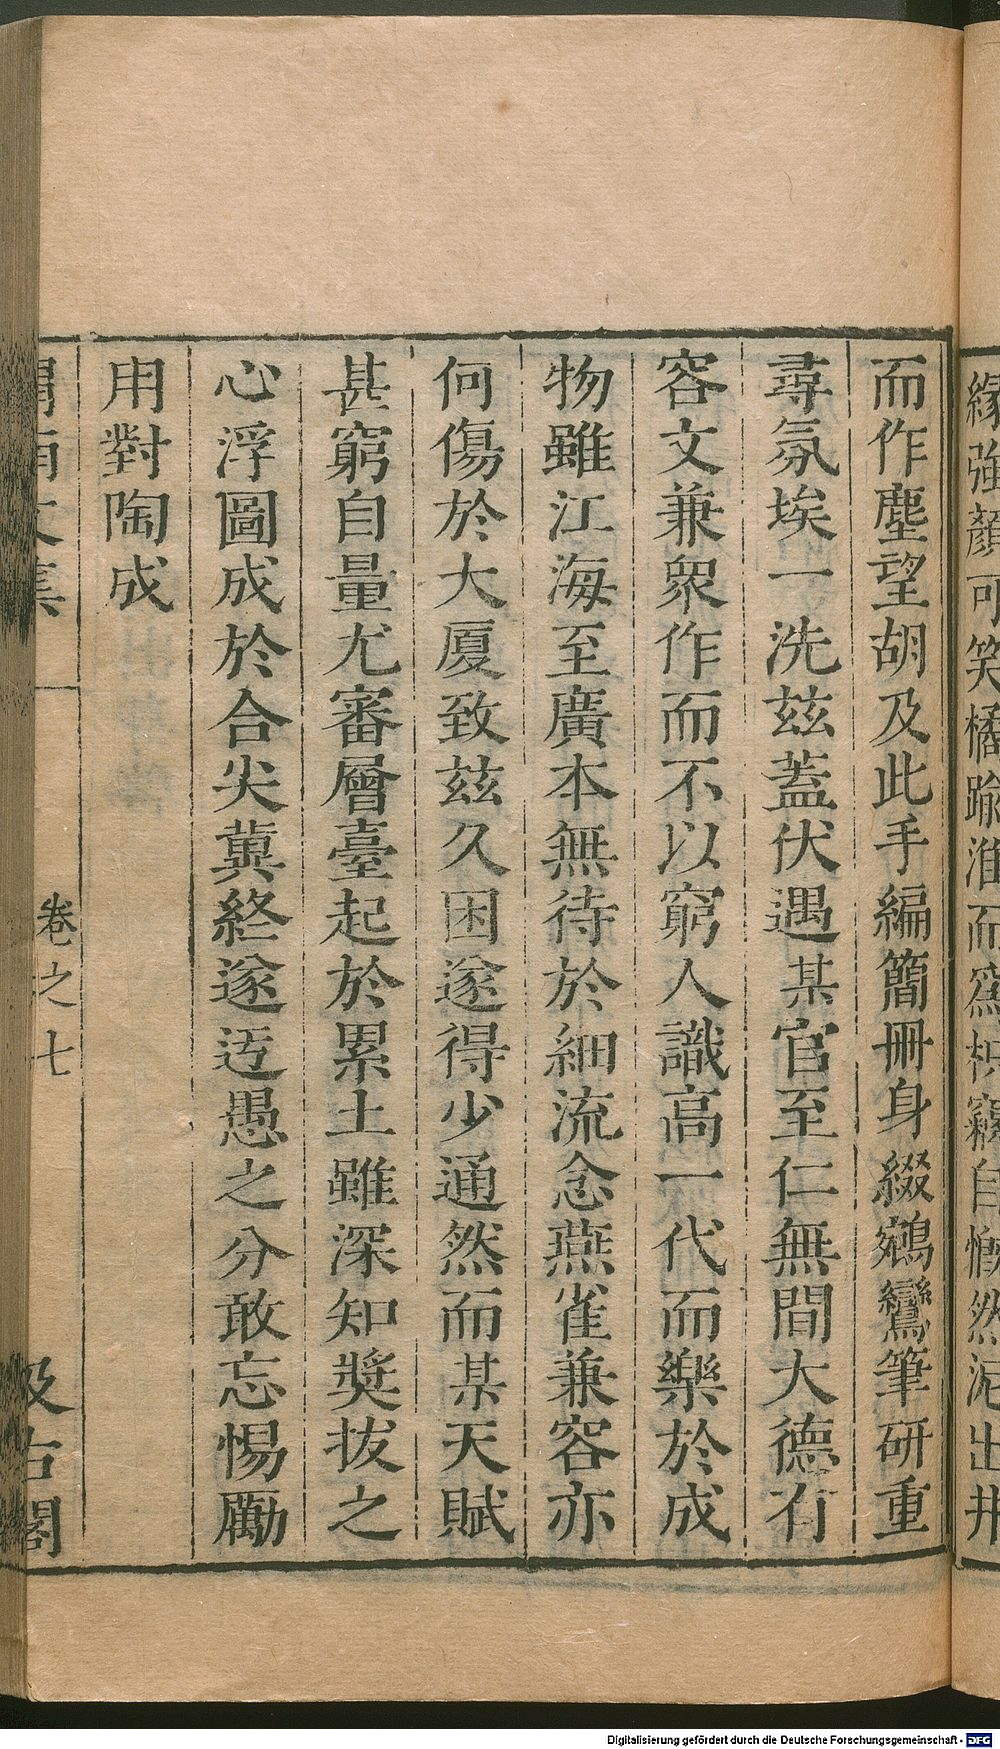 緣強顏可笑橘踰淮而為枳竊自慨然泥出井
而作塵望胡及此手編簡冊身綴鵷鸞筆研重
尋氛埃一洗兹蓋伏遇某官至仁無間大德有
容文兼衆作而不以窮人識高一代而樂於成
物雖江海至廣本無待於細流念燕雀兼容亦
何傷於大廈致兹久困遂得少通然而某天賦
甚窮自量尤審層臺起於累土雖深知奬拔之
心浮圖成於合尖冀終遂迃愚之分敢忘惕勵
用對陶成
渭南文集 卷之七 汲古閣
Digitalisierung gefördert durch die Deutsche Forschungsgemeinschaft - DFG